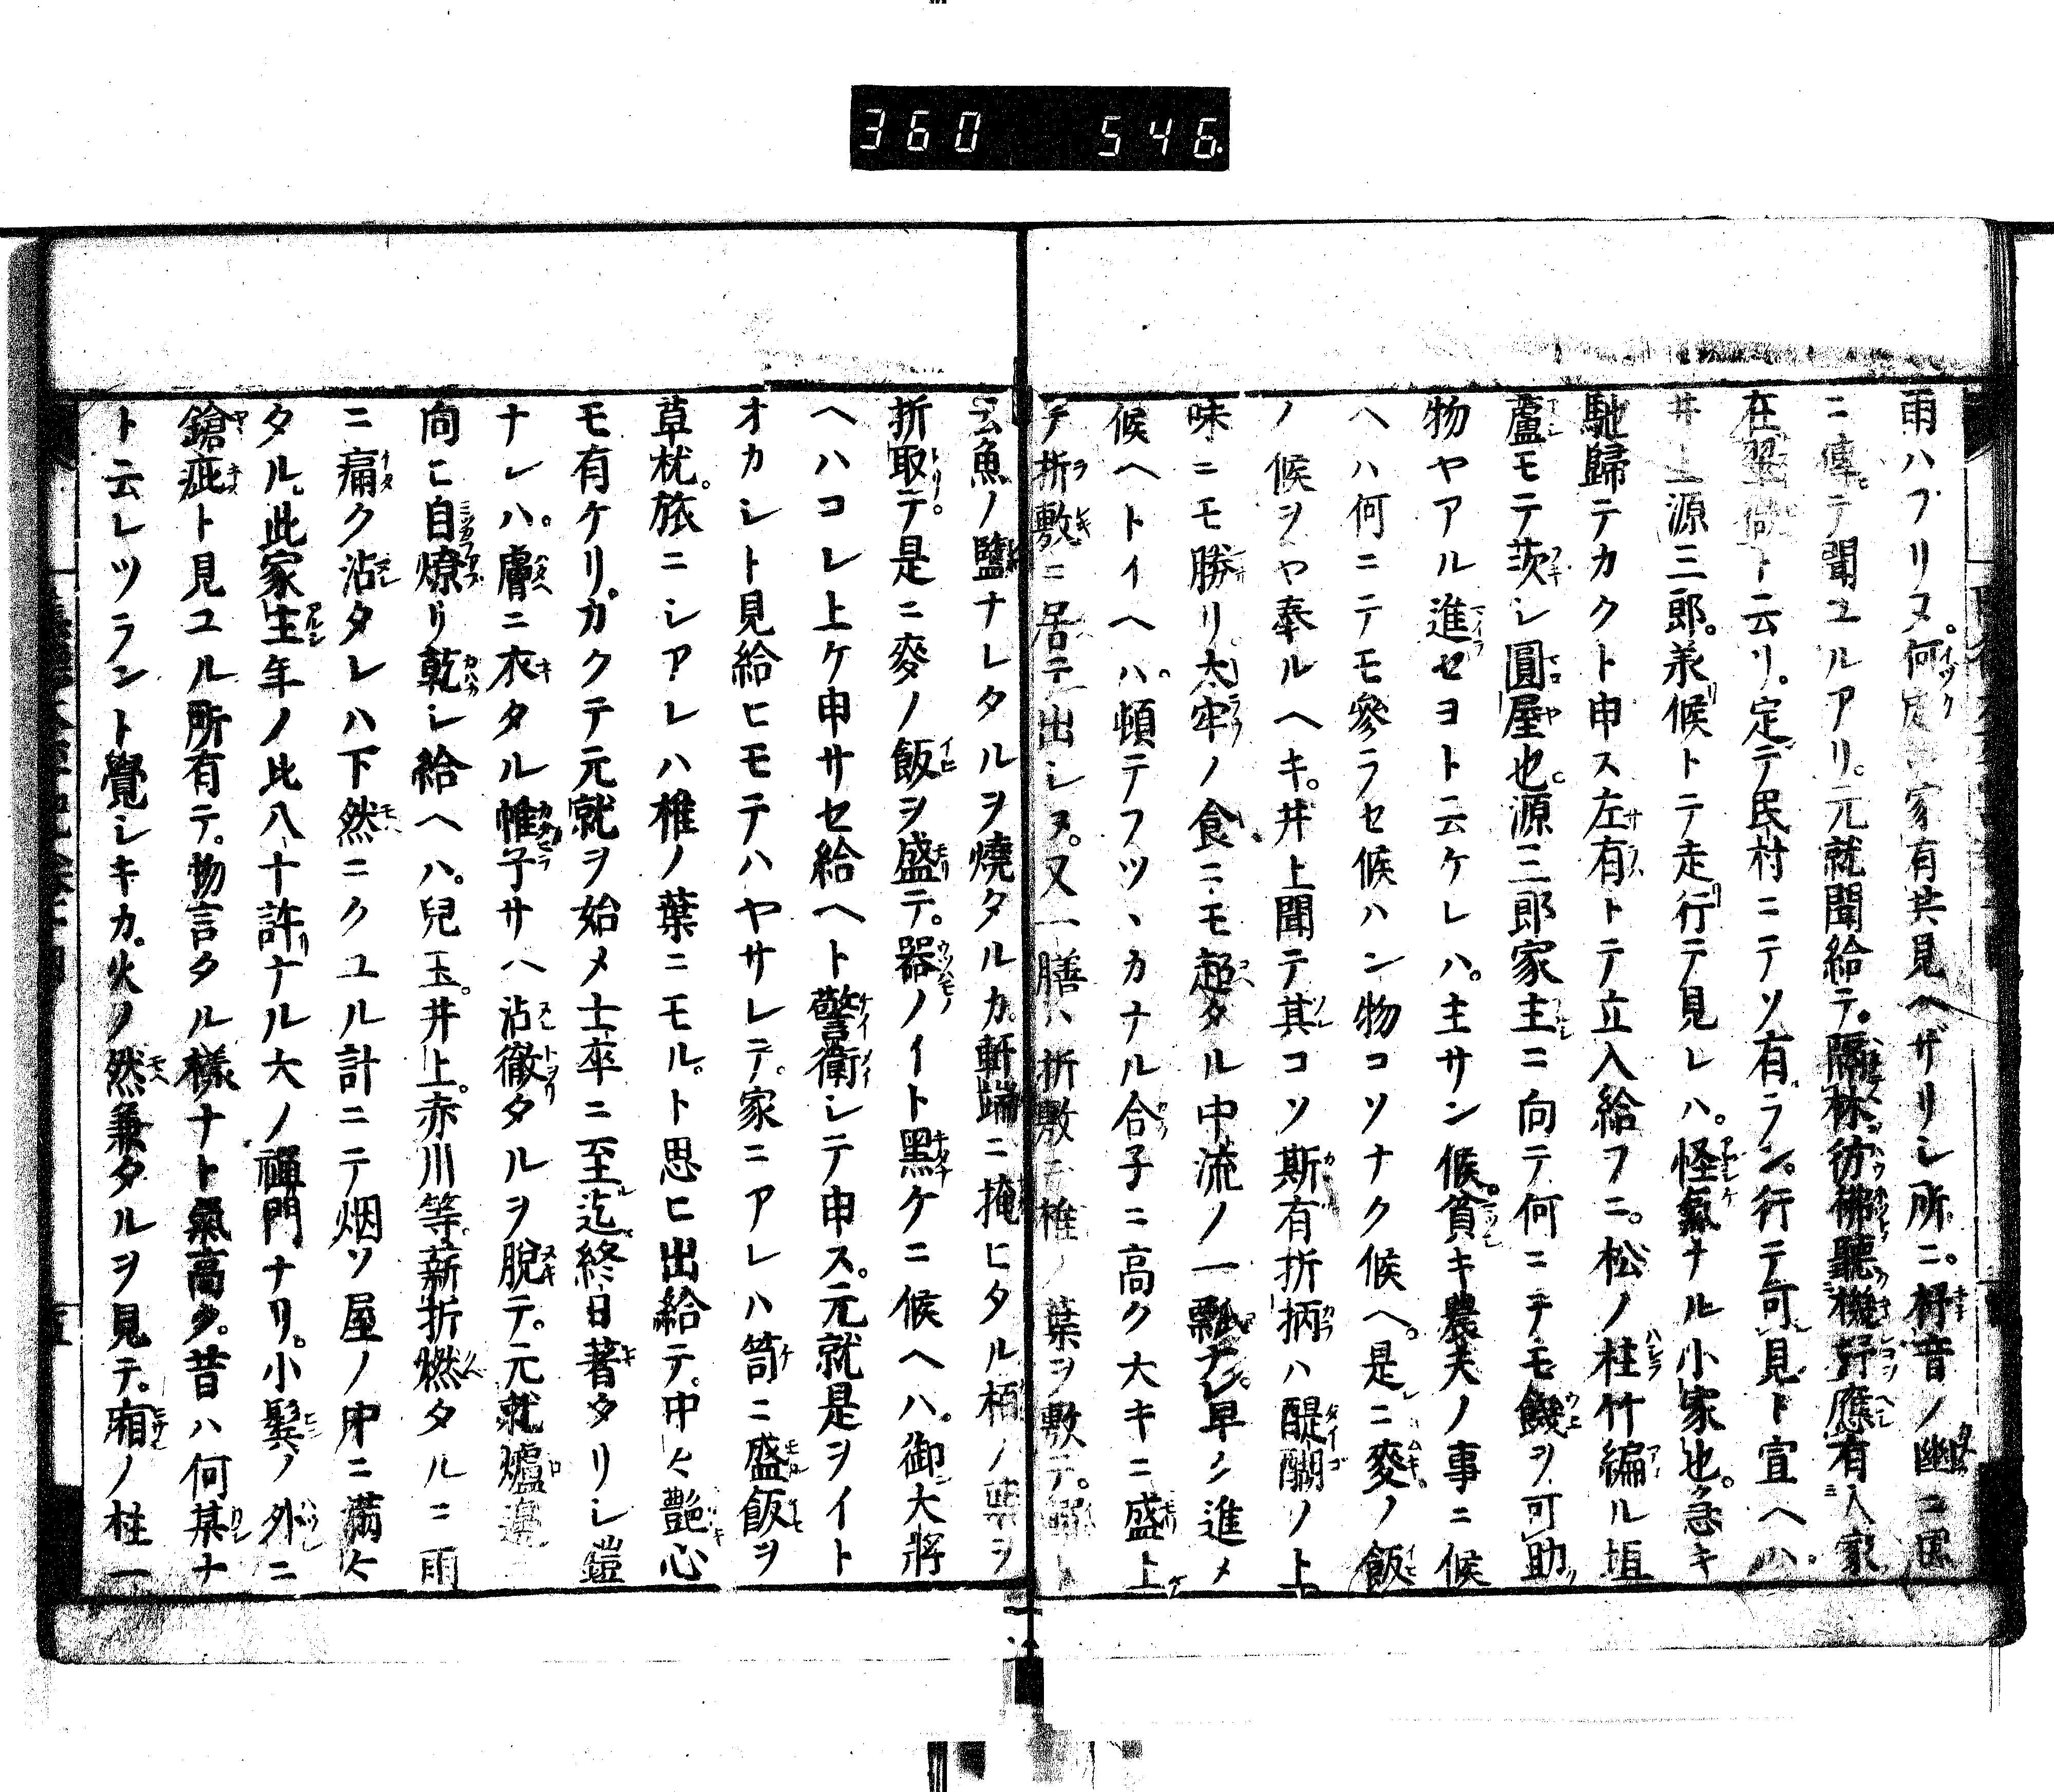 360 546.
雨ハフリヌ。何處ニ家有共見ヘザリシ所ニ。杼音ノ幽ニ風
ニ傳テ聞ユルアリ。元就聞給テ。隔林彷彿聽機杼應有人家
在翠微ト云リ。定テ民村ニテソ有ラン。行テ可見ト宣ヘハ。
井上源三郎。羕候トテ走行テ見レハ。怪氣ナル小家也。急キ
馳歸テカクト申ス左有トテ立入給フニ。松ノ柱竹編ル垣
蘆モテ茨シ圓屋也。源三郎家主ニ向テ何ニテモ饑ヲ可助
物ヤアル進セヨト云ケレハ。主サン候。貧キ農夫ノ事ニ候
ヘハ何ニテモ參ラセ候ハン物コソナク候ヘ。是ニ麥ノ飯
ノ候ヲヤ奉ルヘキ。井上聞テ其コソ斯有折柄ハ醍醐ノ上
味ニモ勝リ。太牢ノ食ニモ超タル中流ノ一瓢ナレ。早ク進メ
候ヘトイヘハ。頓テフツヽカナル合子ニ高ク大キニ盛上
テ折敷ニ居テ出シヌ。又一膳ハ折敷ニ椎ノ葉ヲ敷テ。ト
云魚ノ鹽ナレタルヲ燒タルカ。軒端ニ掩ヒタル栢ノ葉ヲ
折取テ。是ニ麥ノ飯ヲ盛テ。器ノイト黑ケニ候ヘハ。御大將
ヘハコレ上ケ申サセ給ヘト警衛シテ申ス。元就是ヲイト
オカシト見給ヒモテハヤサレテ。家ニアレハ笥ニ盛飯ヲ
草枕。旅ニシアレハ椎ノ葉ニモル。ト思ヒ出給テ。中々艶心
モ有ケリ。カクテ元就ヲ始メ士卒ニ至迄。終日著タリシ鎧
ナレハ。膚ニ衣タル帷子サヘ沾徹タルヲ脫テ。元就爐邊ニ
向ヒ自燎リ乾シ給ヘハ。兒玉。井上。赤川等。薪折燃タルニ雨
ニ痛ク沾タレハ下然ニクユル計ニテ烟ソ屋ノ中ニ滿々
タル。此家主年ノ比八十許ナル大ノ禪門ナリ。小鬂ノ外ニ
鎗疵ト見ユル所有テ。物言タル樣ナト氣高ク。昔ハ何某ナ
ト云レツラント覺シキカ。火ノ然兼タルヲ見テ。廂ノ柱一